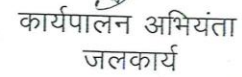 कार्यपालन अभियंता
जलकार्य